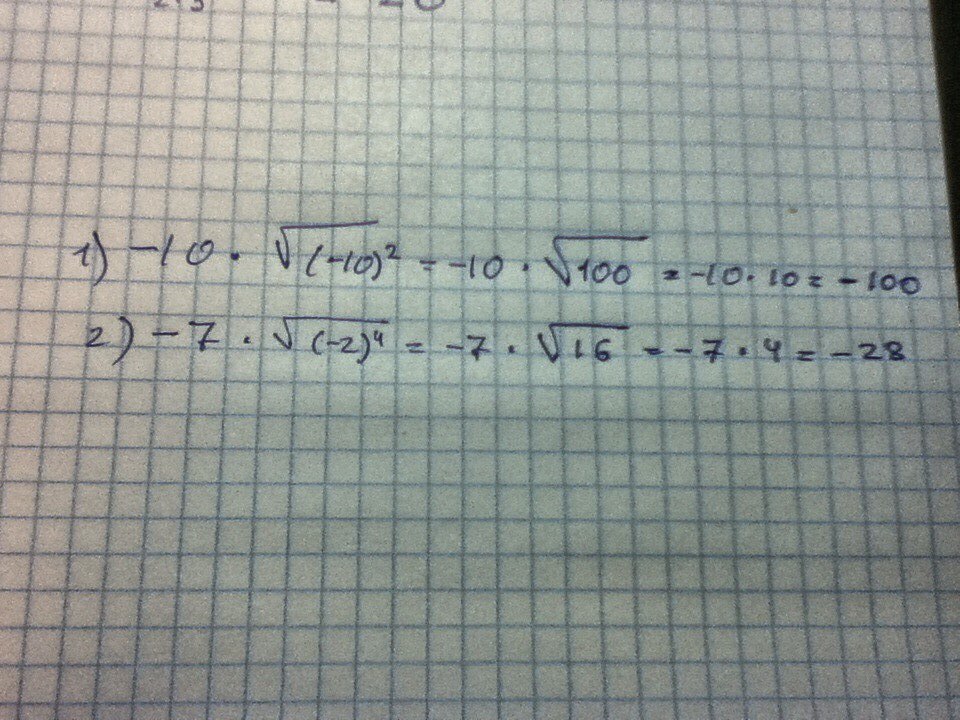 1) -10 · √(-10)² = -10 · √100 = -10 · 10 = -100
2) -7 · √(-2)⁴ = -7 · √16 = -7 · 4 = -28